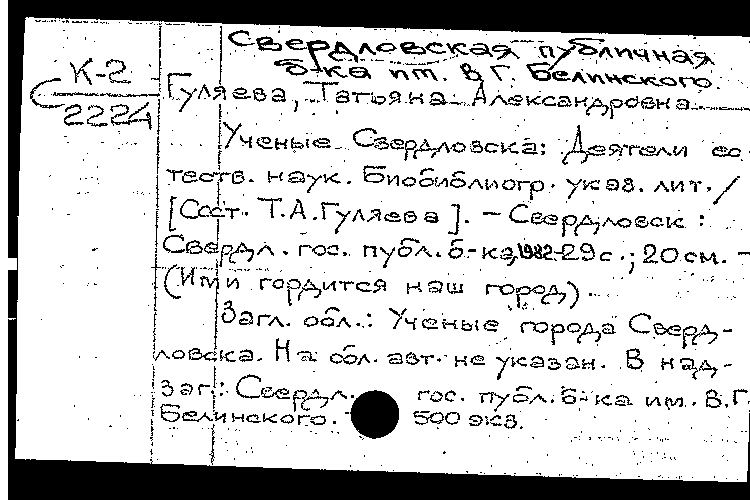 Свердловская публичная
б-ка им. В.Г. Белинского.
К-2
2224
Гуляева, Татьяна Александровна
Ученые Свердловска: Деятели ес-
теств. наук. Биобиблиогр. указ. лит. /
[Сост. Т.А. Гуляева]. - Свердловск:
Свердл. гос. публ. б-ка, 1982-29 с.; 20 см. -
(Ими гордится наш город).
Загл. обл.: Ученые города Сверд-
ловска. На обл. авт. не указан. В над-
заг.: Свердл. гос. публ. б-ка им. В.Г.
Белинского. 500 экз.